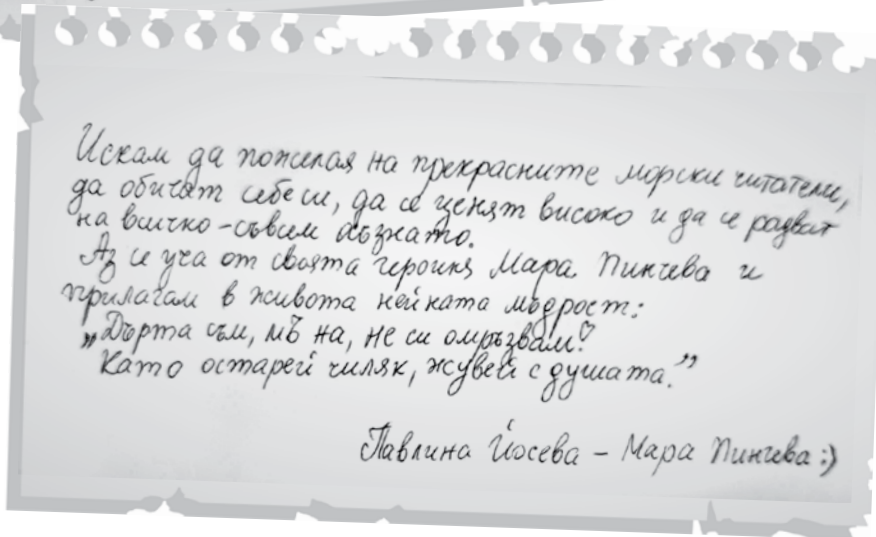 Искам да пожелая на прекрасните морски читатели,
да обичат себе си, да се ценят високо и да се радват
на всичко - съвсем осъзнато.
Аз се уча от своята героиня Мара Пинчева и
прилагам в живота нейната мъдрост:
„Дърта съм, мъ на, не си омръзвам!
Като остарей чиляк, жувей с душата."
Павлина Йосева - Мара Пинчева :)